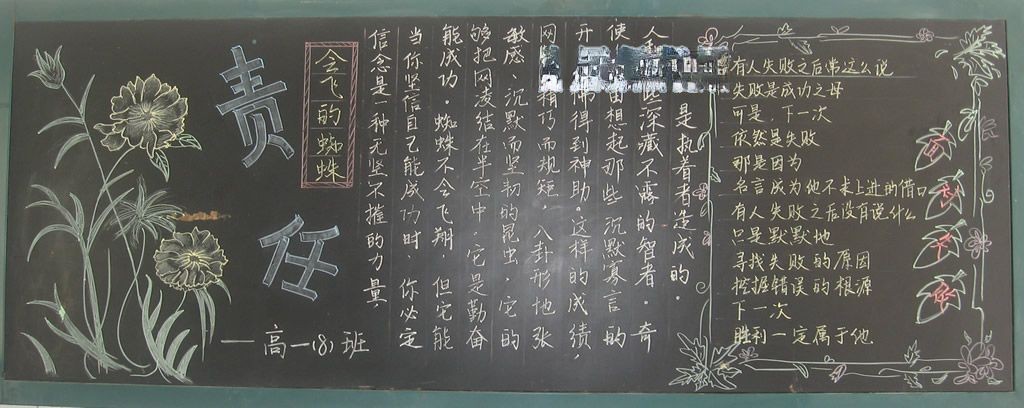 责任
会飞的蜘蛛
信念是一种无坚不摧的力量
当你坚信自己能成功时、你必定
能成功。蜘蛛不会飞翔,但它能
够把网凌结在半空中 它是勤奋
敏感、沉默而坚韧的昆虫,它的
网 精巧而规矩 八卦形地张
开 佛得到神助 这样的成绩,
使 由想起那些沉默寡言的
人 些深藏不露的智者。奇
是执着者造成的。
一高一(8)班
有人失败之后常这么说
失败是成功之母
可是,下一次
依然是失败
那是因为
名言成为他不求上进的借口
有人失败之后没有说什么
只是默默地
寻找失败的原因
挖掘错误的根源
下一次
胜利一定属于他